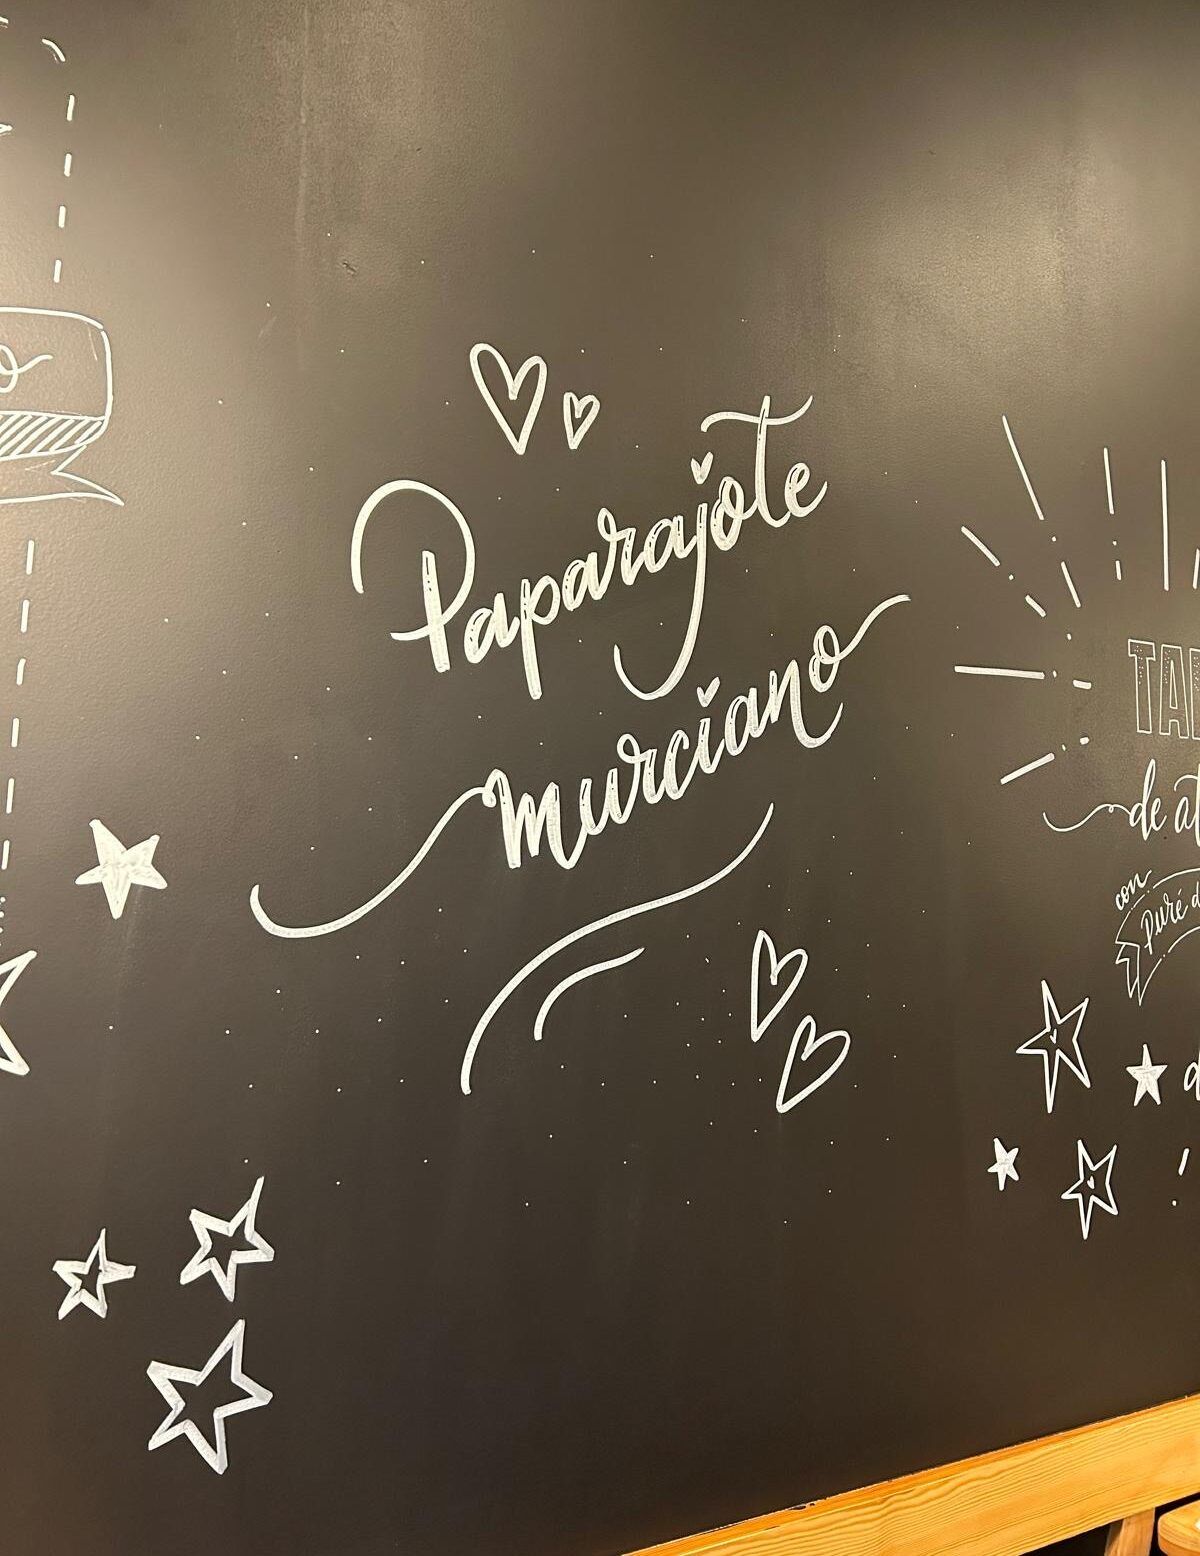 Paparajote
murciano
de
con
Puré